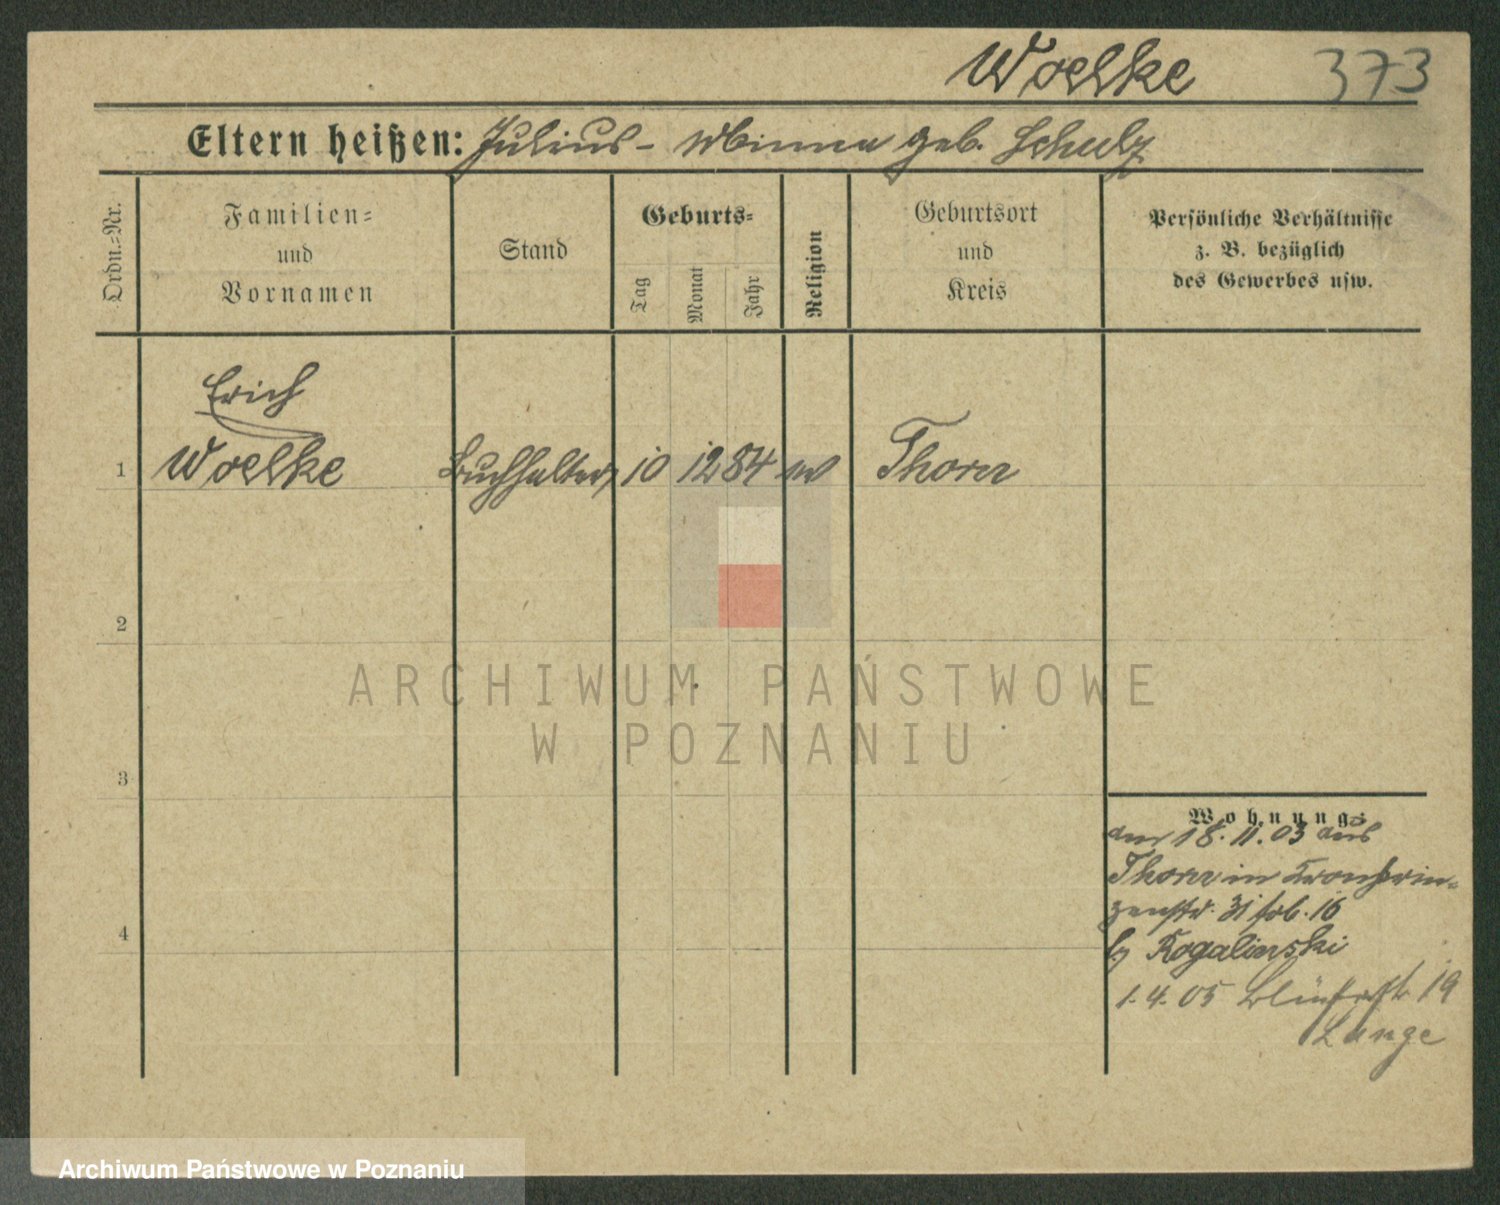 Woelke 373
Eltern heißen: Julius – Minna geb. Schulz
Ordn.-Nr.
Familien-
und
Vornamen
Stand
Geburts-
Tag
Monat
Jahr
Religion
Geburtsort
und
Kreis
Persönliche Verhältnisse
z. B. bezüglich
des Gewerbes usw.
Erich
1 Woelke Buchhalter 10 12 84 Thorn
2
ARCHIWUM PAŃSTWOWE
W POZNANIU
3
Wohnung:
am 18. 11. 03 aus
Thorn in Kronprin-
zenstr. 31 16
b/ Rogalinski
4
1. 4. 05 19
Lange
Archiwum Państwowe w Poznaniu